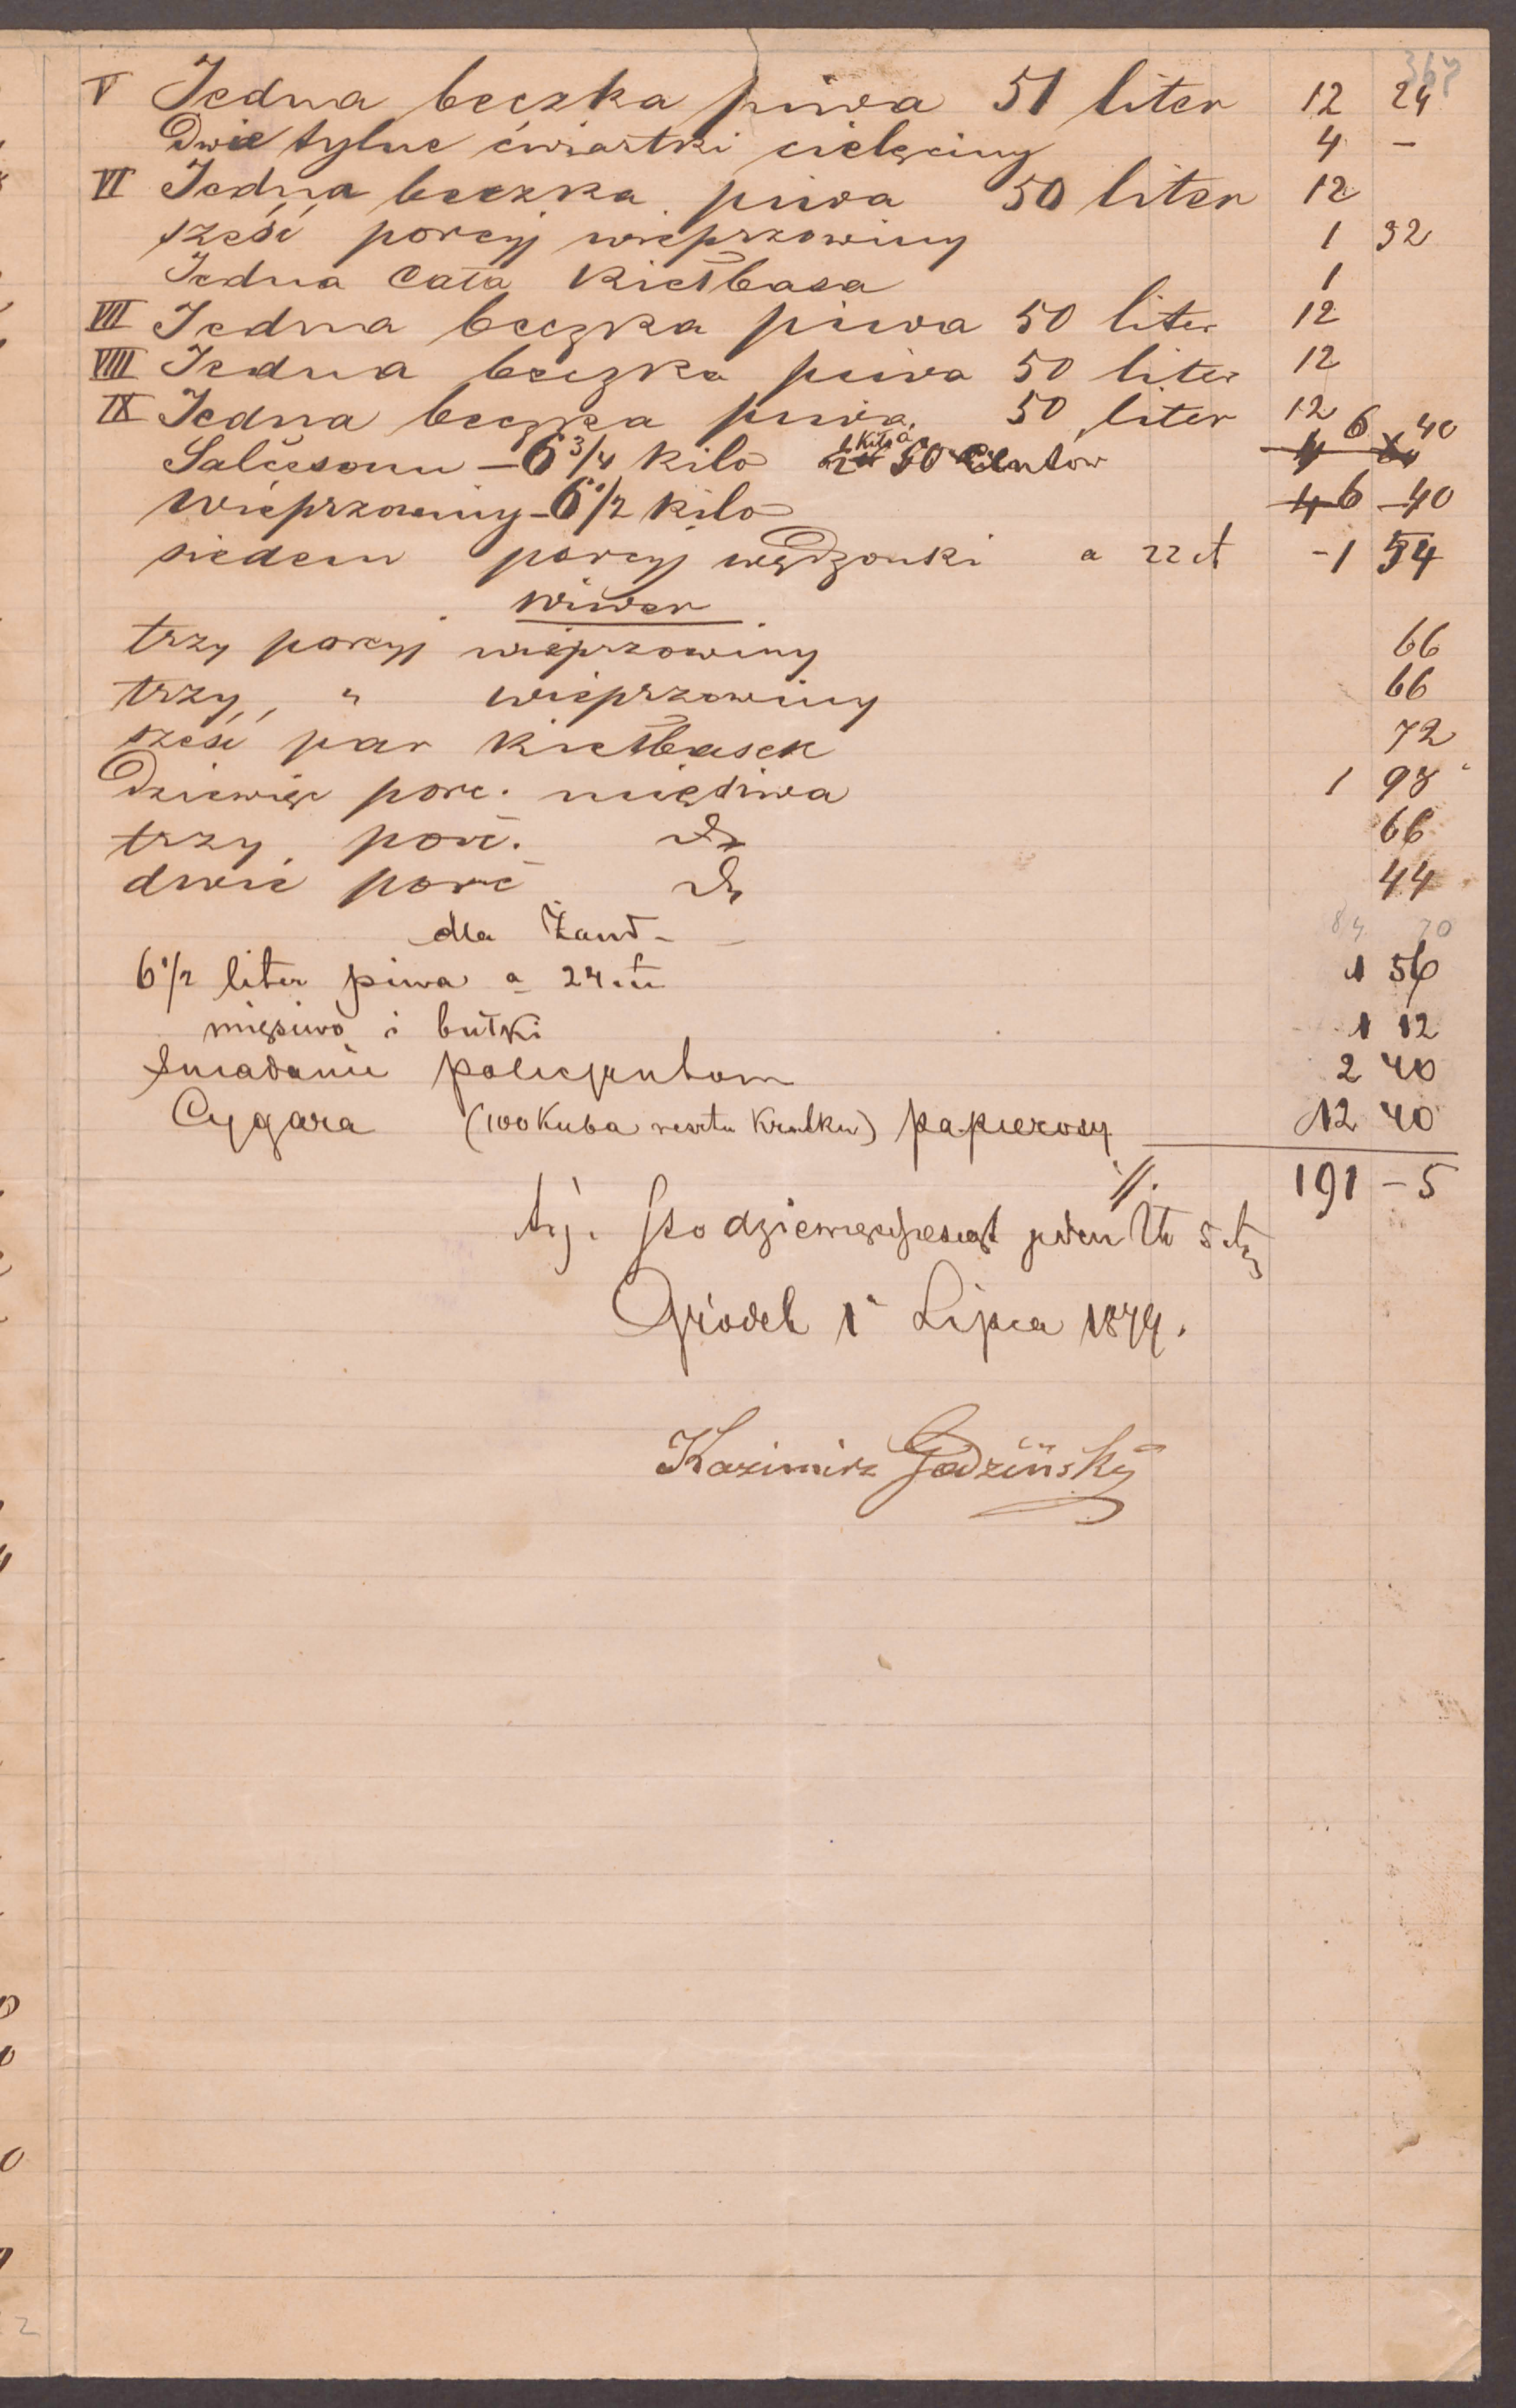 367
V Jedna beczka piwa 51 liter 12 24
Dwie tylne ćwiartki cielęciny 4 –
VI Jedna beczka piwa 50 liter 12
sześć porcyj wieprzowiny 1 32
Jedna cała kiełbasa 1
VII Jedna beczka piwa 50 liter 12
VIII Jedna beczka piwa 50 liter 12
IX Jedna beczka piwa 50 liter 12
Salcesonu – 6 3/4 kilo kilo a 50 centów 6 40
Wieprzowiny – 6 1/2 kilo 4 6 – 40
siedem porcyj wędzonki a 22 ct – 1 54
Wiwer
trzy porcyj wieprzowiny 66
trzy „ wieprzowiny 66
sześć par kiełbasek 72
Dziewięć porc. mięsiwa 1 98
trzy porc. do 66
dwie porc do 44
dla Żand – 84 70
6 1/2 liter piwa a 24 ct 1 56
mięsiwo i bułki 1 12
Śniadanie policjantom 2 40
Cygara (100 Kuba reszta krótkie) papierosy 12 40
191 – 5
t.j. sto dziewięćdziesiąt jeden 5 ct
Gródek 1 Lipca 1879.
Kazimirz Godziński